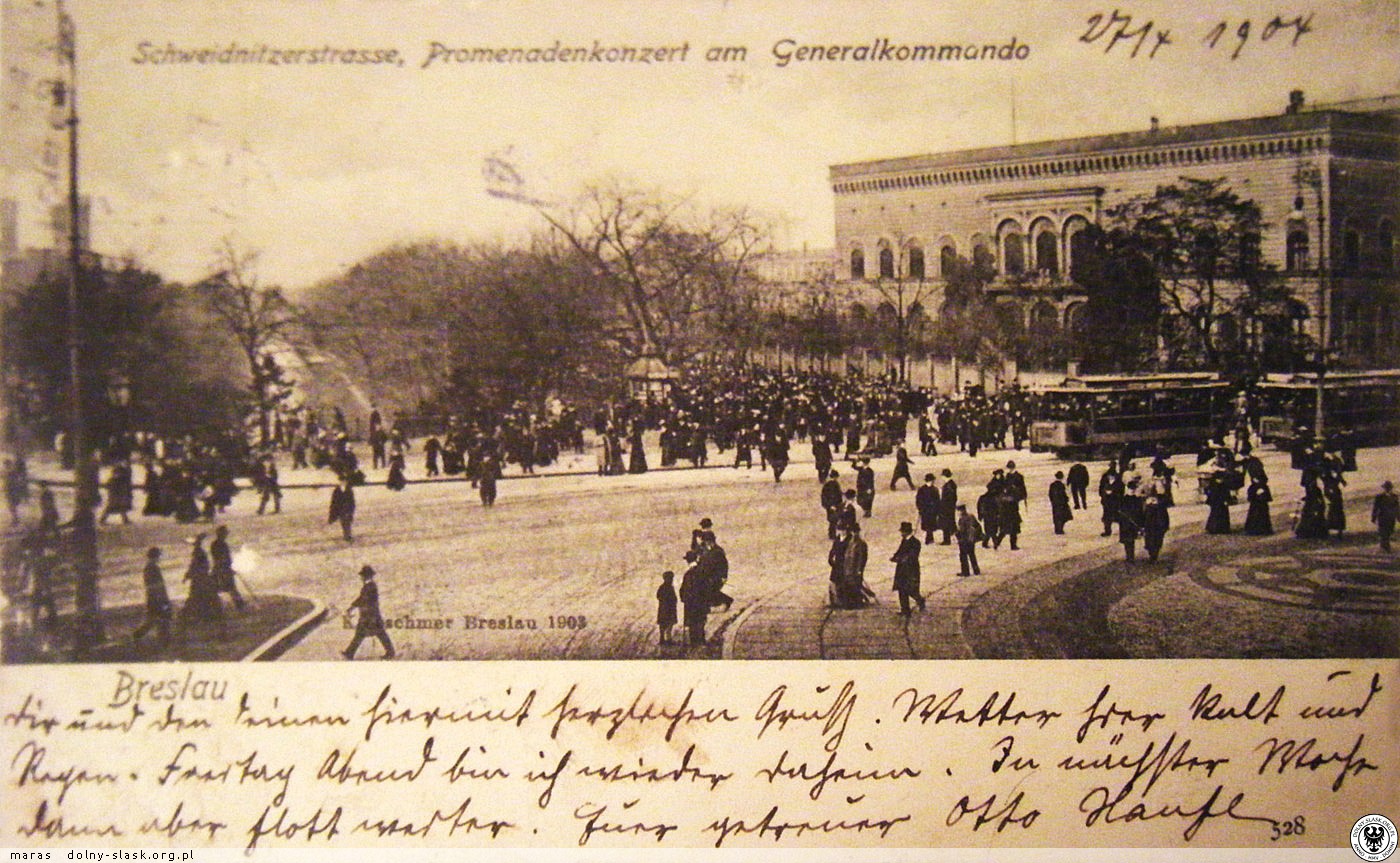 Schweidnitzerstrasse, Promenadenkonzert am Generalkommando
27/X 1904
Kretschmer Breslau 1903
Breslau
Dir und den deinen hiermit herzlichen Gruß. Wetter hier kalt und
Regen. Freitag Abend bin ich wieder daheim. In nächster Woche
dann aber flott weiter. Euer getreuer Otto
328
maras dolny-slask.org.pl